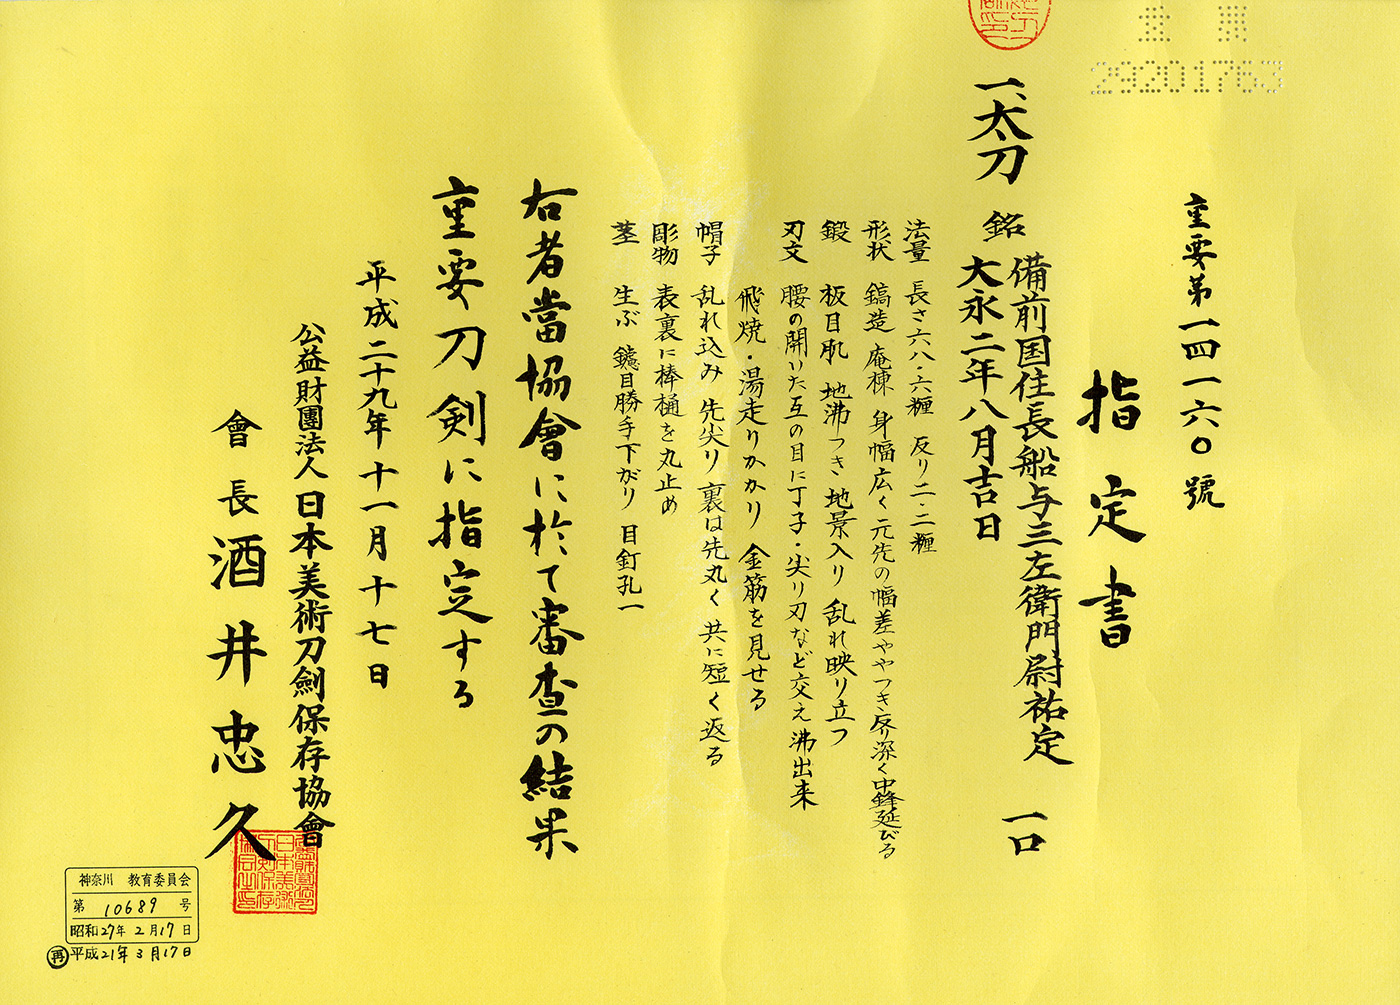 重要
29201763
重要第一四一六〇號
指定書
一、太刀 銘 備前国住長船与三左衛門尉祐定 一口
大永二年八月吉日
法量 長さ六八・六糎 反り二・二糎
形状 鎬造 庵棟 身幅広く 元先の幅差ややつき 反り深く 中鋒延びる
鍛 板目肌 地沸つき 地景入り 乱れ映り立つ
刃文 腰の開いた互の目に丁子・尖り刃など交え 沸出来
飛焼・湯走りかかり 金筋を見せる
帽子 乱れ込み 先尖り 裏は先丸く 共に短く返る
彫物 表裏に棒樋を丸止め
茎 生ぶ 鑢目勝手下がり 目釘孔一
右者當協會に於て審査の結果
重要刀剣に指定する
平成二十九年十一月十七日
公益財團法人日本美術刀劍保存協會
會長 酒井忠久
神奈川 教育委員会
第 10689 号
昭和27年2月17日
再 平成21年3月17日